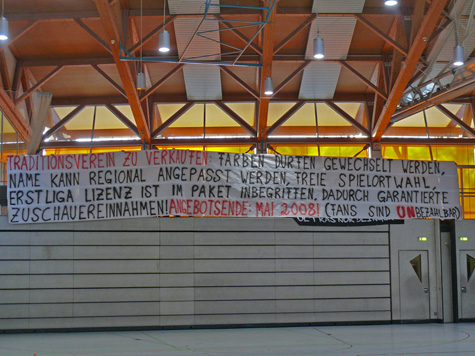 TRADITIONSVEREIN ZU VERKAUFEN FARBEN DÜRFEN GEWECHSELT WERDEN,
NAME KANN REGIONAL ANGEPASST WERDEN, FREIE SPIELORTWAHL,
ERSTLIGA LIZENZ IST IM PAKET INBEGRIFFEN, DADURCH GARANTIERTE
ZUSCHAUEREINNAHMEN! ANGEBOTSENDE: MAI 2008! (FANS SIND UNBEZAHLBAR)